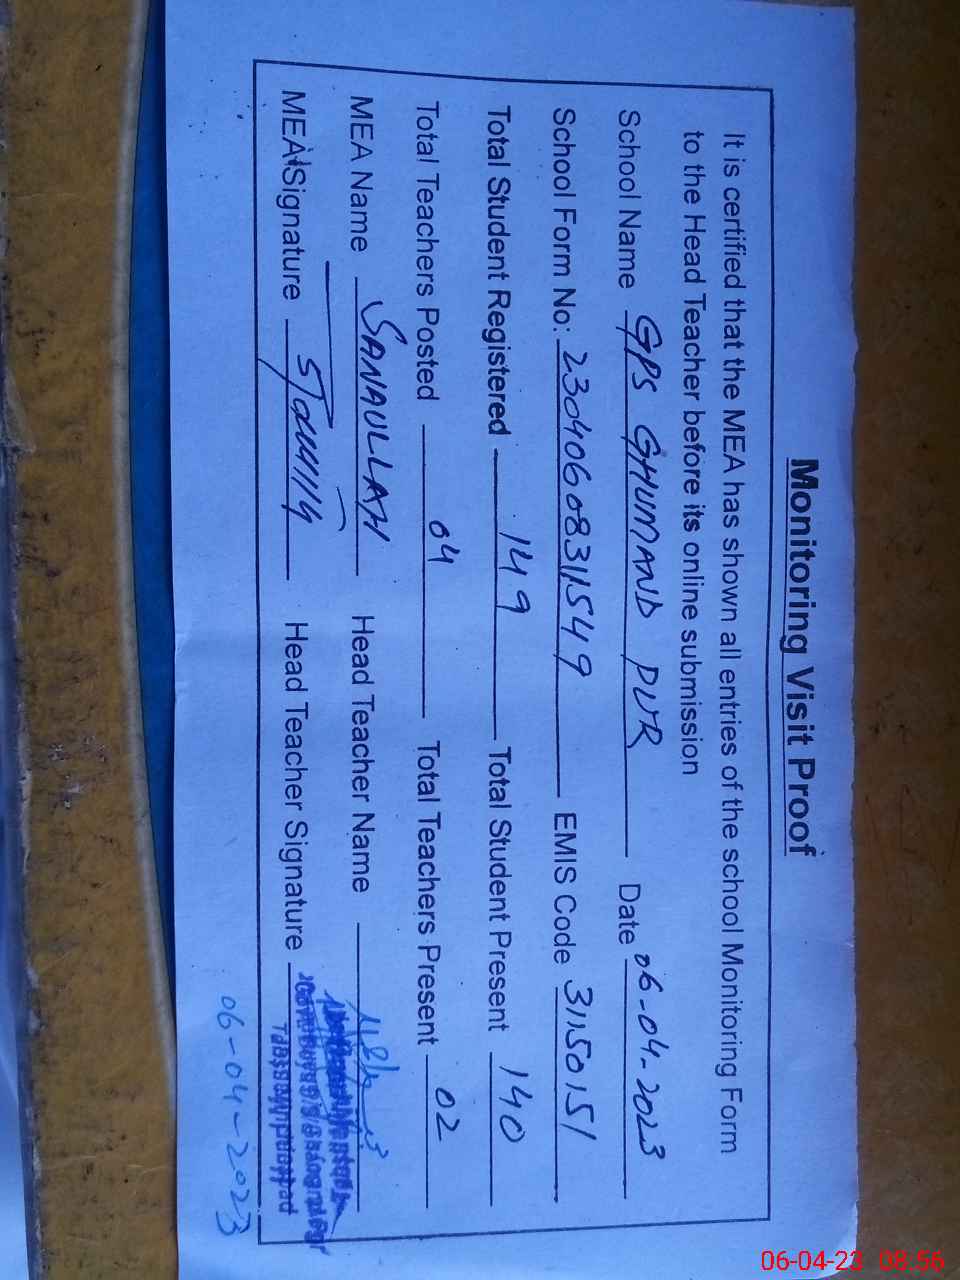 Monitoring Visit Proof
It is certified that the MEA has shown all entries of the school Monitoring Form
to the Head Teacher before its online submission
School Name GPS GHUMAND PUR Date 06-04-2023
School Form No: 23040608311549 EMIS Code 31150151
Total Student Registered 149 Total Student Present 140
Total Teachers Posted 04 Total Teachers Present 02
MEA Name SANAULLAH Head Teacher Name
MEA Signature Head Teacher Signature
06-04-2023
06-04-23 08:56